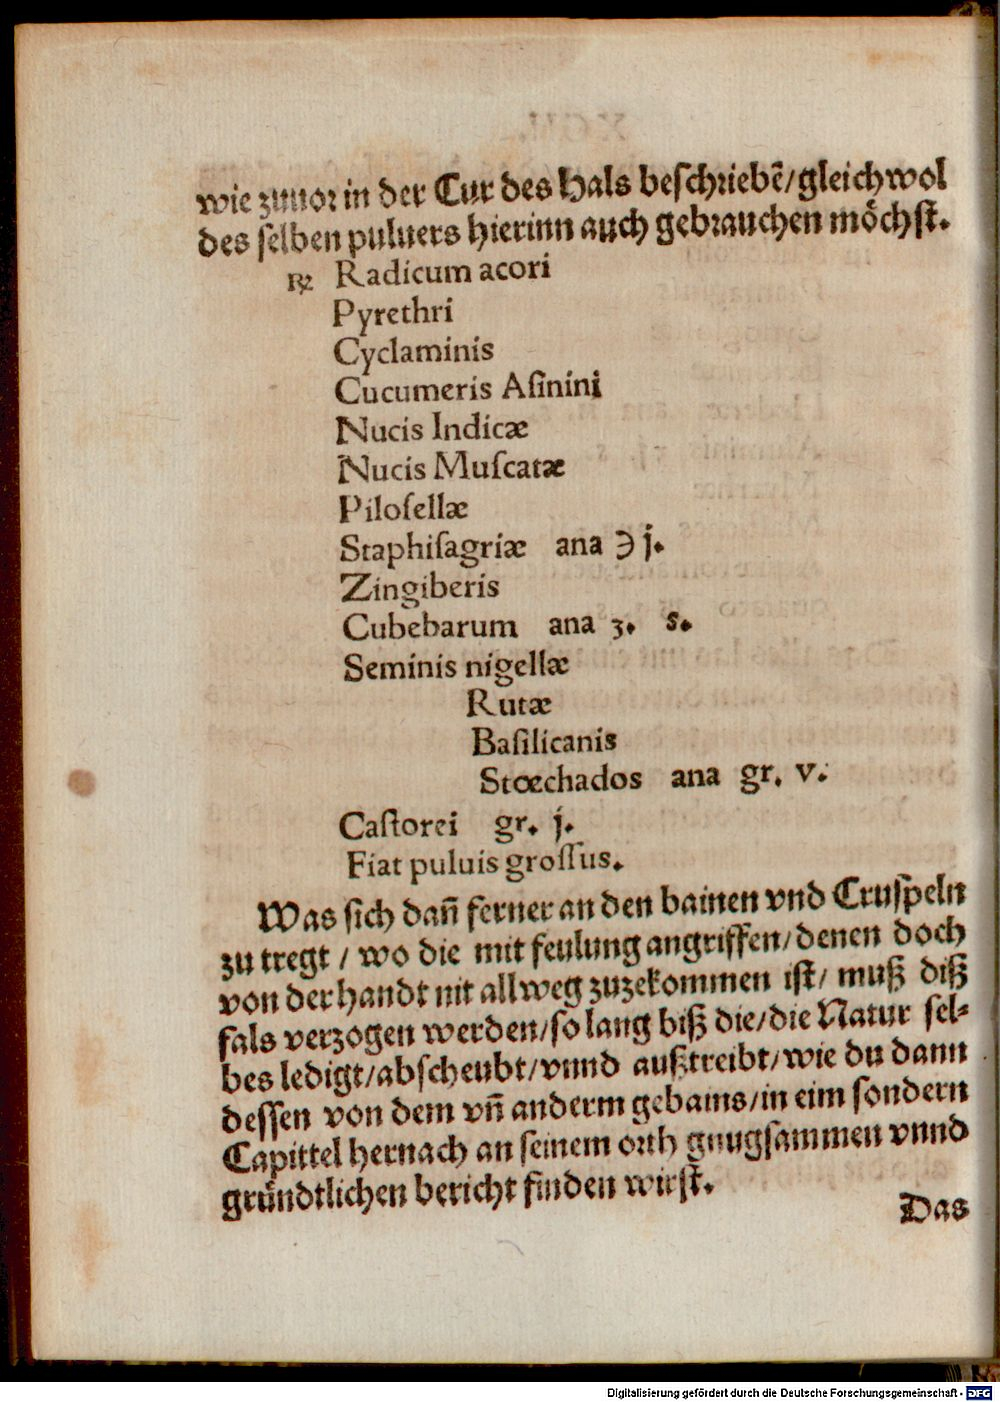 wie zuuor in der Cur des Hals beschriebē/gleichwol
des selben puluers hierinn auch gebrauchen möchst.
℞ Radicum acori
Pyrethri
Cyclaminis
Cucumeris Aſinini
Nucis Indicæ
Nucis Muſcatæ
Piloſellæ
Staphiſagriæ ana ℈ j.
Zingiberis
Cubebarum ana ʒ. s.
Seminis nigellæ
Rutæ
Baſilicanis
Stœchados ana gr. v.
Caſtorei gr. j.
Fiat puluis groſſus.
Was sich dañ ferner an den bainen vnd Cruſpeln
zu tregt / wo die mit feulung angriffen/denen doch
von der handt nit allweg zuzekommen iſt/ muß diß
fals verzogen werden/so lang biß die/die Natur sel-
bes ledigt/abscheubt/vnnd außtreibt/wie du dann
dessen von dem vñ anderm gebains/in eim sondern
Capittel hernach an seinem orth gnugsammen vnnd
gründtlichen bericht finden wirſt.
Das
Digitalisierung gefördert durch die Deutsche Forschungsgemeinschaft - DFG